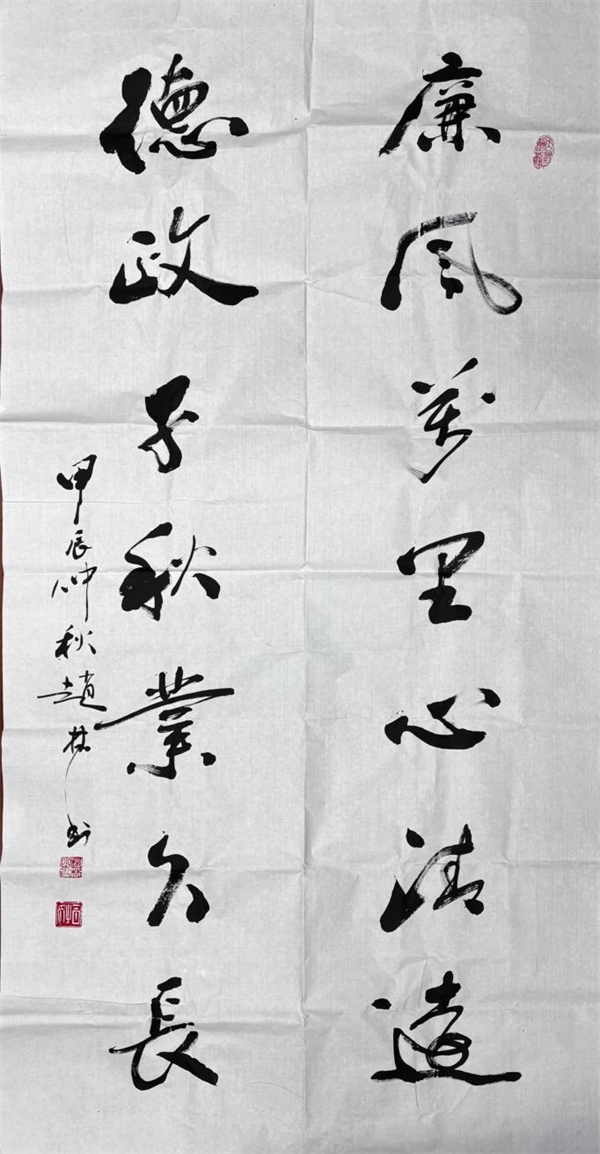 廉風萬里心清遠
德政千秋業久長
甲辰仲秋趙林書